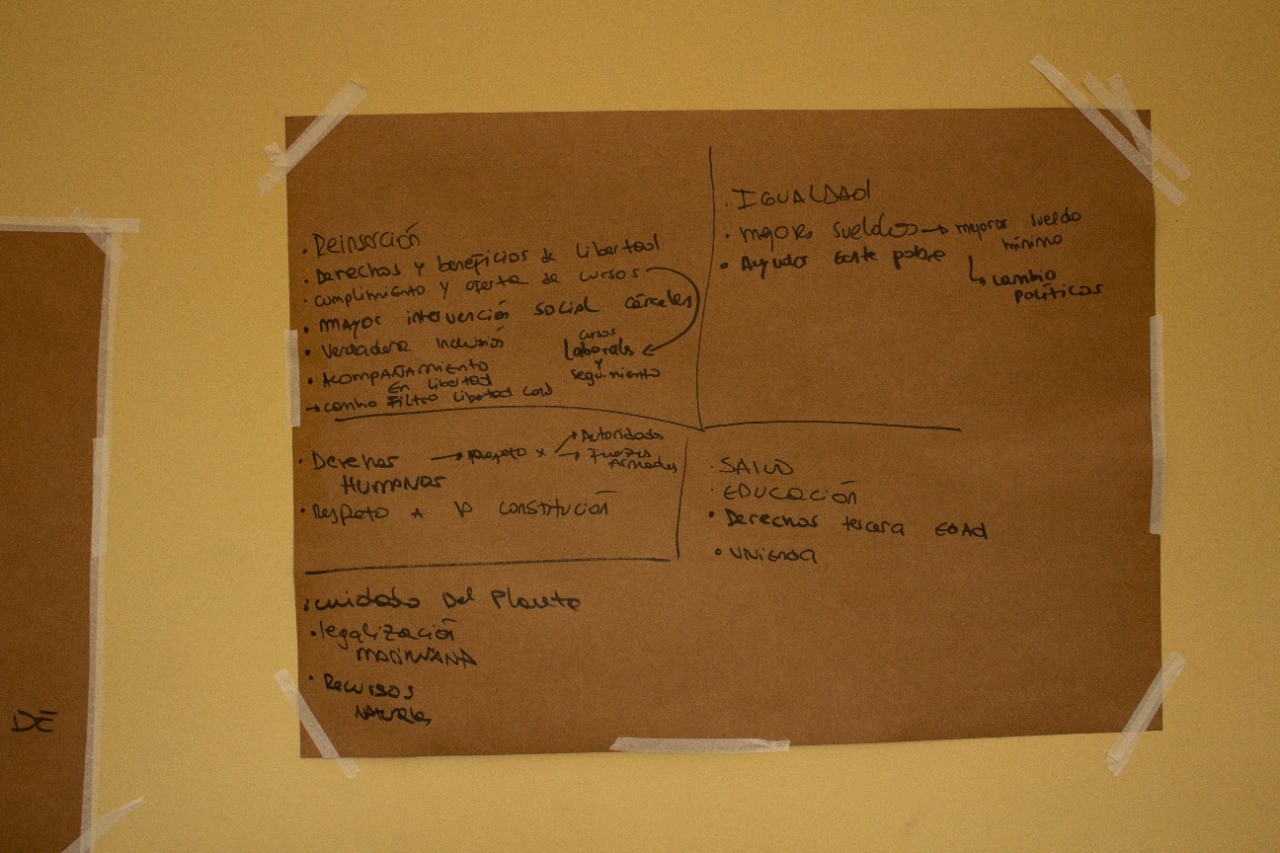 . Reinserción
. Derechos y beneficios de libertad
. cumplimiento y oferta de cursos
• MAYOR intervención social cárceles
• Verdadera inclusión
cursos
laborales
y
seguimiento
• ACOMPAÑAMIENTO
EN libertad
→ cambio Filtro libertad cond
. IGUALDAD
. mejores sueldos → mejorar sueldo
mínimo
• Ayudar gente pobre
↳ cambio
políticos
• Derechos → respeto x → Autoridades
→ Fuerzas
Armadas
HUMANOS
. Respeto A la constitución
. SALUD
. EDUCACIÓN
• Derechos tercera EDAD
• vivienda
: cuidado Del Planeta
• legalización
MARIHUANA
• Recursos
NATURALES
DE